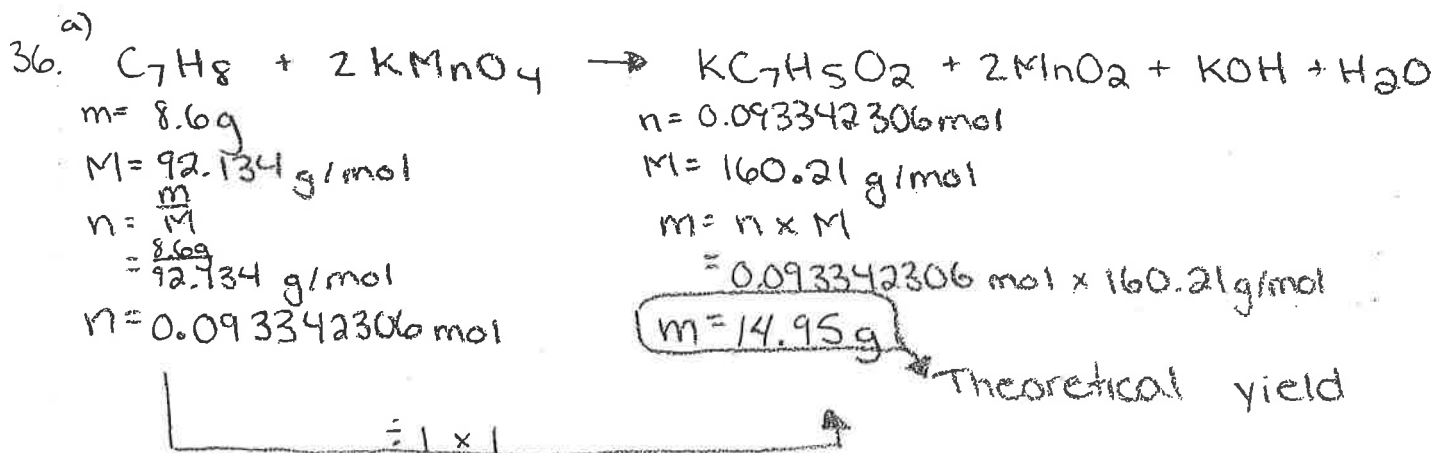 a)
36. C7H8 + 2 KMnO4 → KC7H5O2 + 2MnO2 + KOH + H2O
m= 8.6g
M= 92.134 g/mol
n= m/M
= 8.6g/92.134 g/mol
n=0.093342306 mol
n= 0.093342306 mol
M= 160.21 g/mol
m= n x M
= 0.093342306 mol x 160.21g/mol
m=14.95g
Theoretical yield
÷ 1 x 1